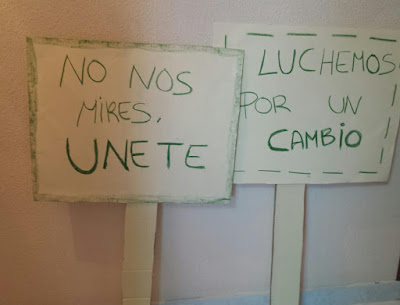 NO NOS
MIRES,
UNETE
LUCHEMOS
POR UN
CAMBIO